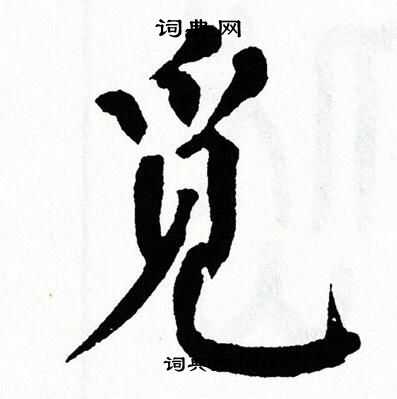 词典网
觅
词典